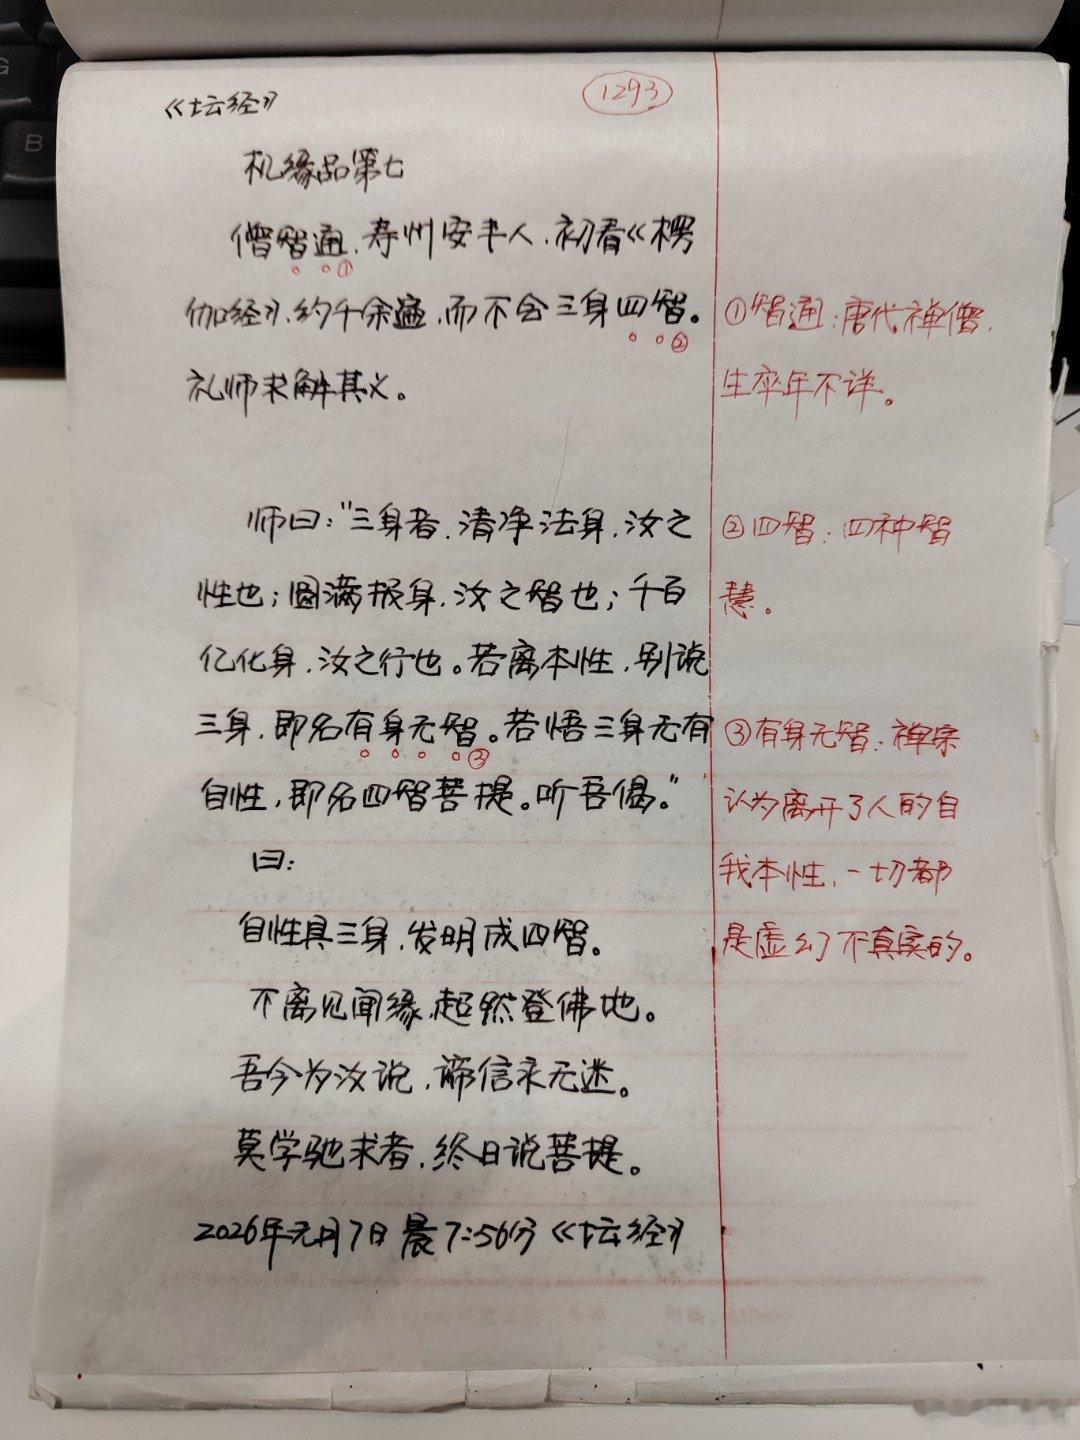 《坛经》
1293
机缘品第七
僧智通、寿州安丰人、初看《楞
①
伽经》、约千余遍、而不会三身四智。
②
礼师求解其义。
师曰:"三身者、清净法身、汝之
性也;圆满报身、汝之智也;千百
亿化身、汝之行也。若离本性、别说
三身、即名有身无智。若悟三身无有
③
自性、即名四智菩提。听吾偈。"
曰:
自性具三身、发明成四智。
不离见闻缘、超然登佛地。
吾今为汝说、谛信永无迷。
莫学驰求者、终日说菩提。
2026年元月7日晨7:56分《坛经》
①智通:唐代禅僧、
生卒年不详。
②四智:四种智
慧。
③有身无智:禅宗
认为离开了人的自
我本性、一切都
是虚幻不真实的。
G
B